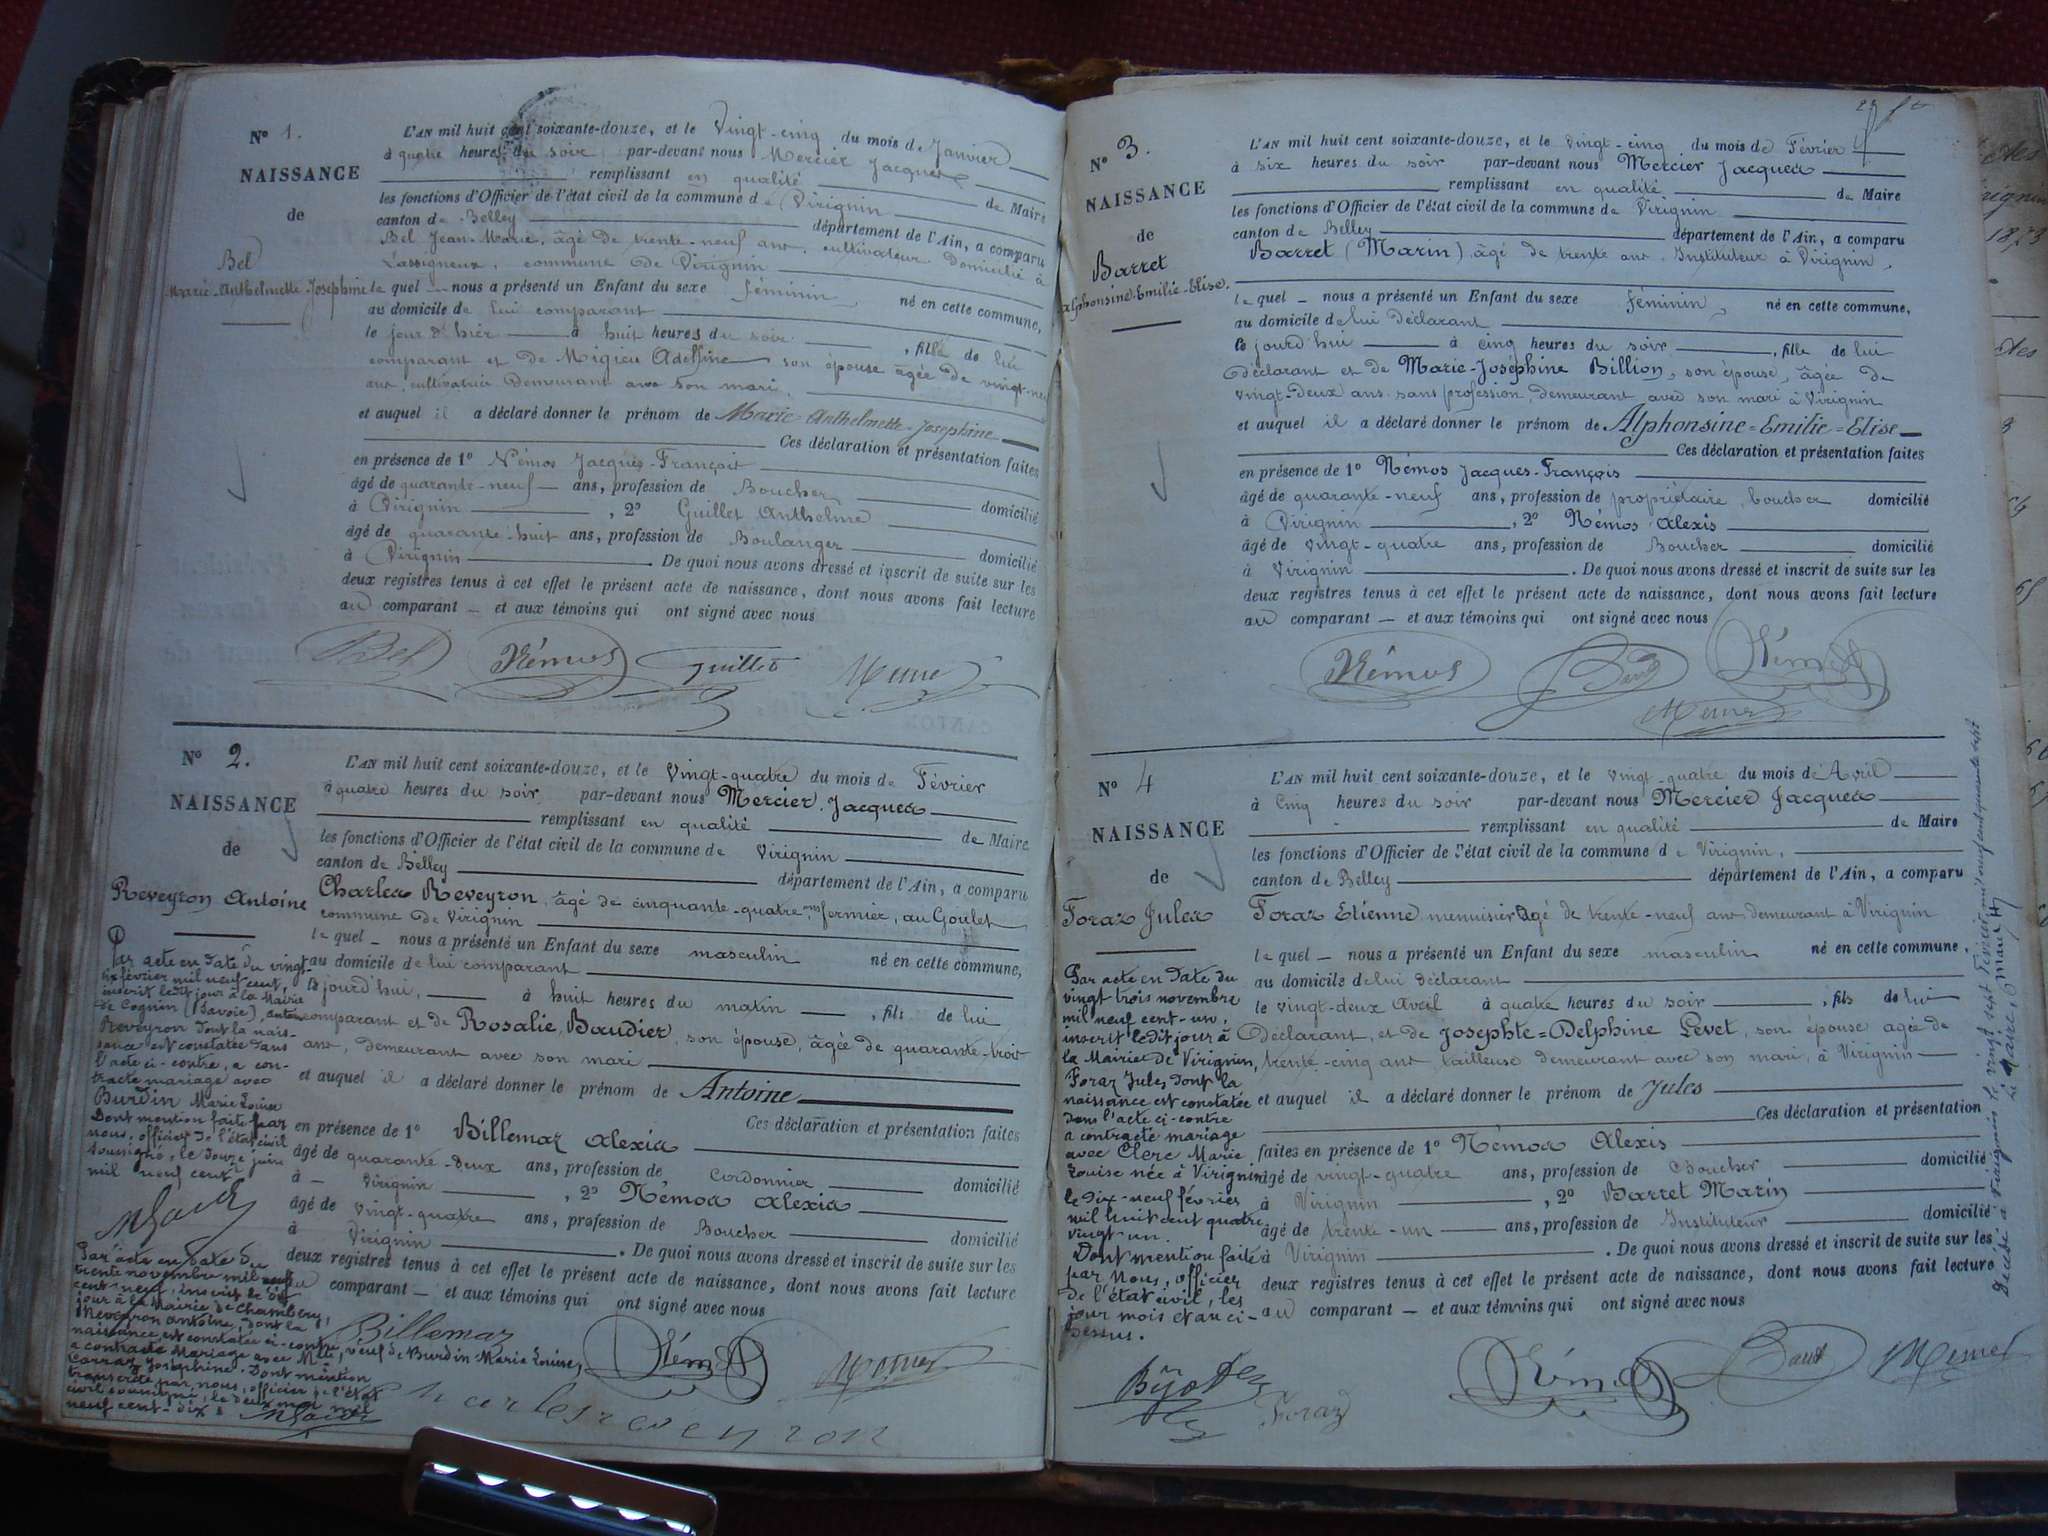 N° 1.
NAISSANCE
de
Bel
Marie-Anthelmette-Joséphine
L'AN mil huit cent soixante-douze, et le Vingt-cinq du mois de Janvier
à quatre heures du soir par-devant nous Mercier Jacques
remplissant en qualité de Maire
les fonctions d'Officier de l'état civil de la commune de Virignin
canton de Belley département de l'Ain, a comparu
Bel Jean-Marie, âgé de trente-neuf ans, cultivateur domicilié à
Lassigneux, commune de Virignin
le quel nous a présenté un Enfant du sexe féminin, né en cette commune,
au domicile de lui comparant
le jour d'hier à huit heures du soir, fille de lui
comparant et de Migieu Adelfine son épouse âgée de vingt-neuf
ans, cultivatrice demeurant avec son mari,
et auquel il a déclaré donner le prénom de Marie-Anthelmette-Joséphine
Ces déclaration et présentation faites
en présence de 1° Némos Jacques-François
âgé de quarante-neuf ans, profession de Boucher
domicilié
à Virignin, 2° Guillet Anthelme
âgé de quarante-huit ans, profession de Boulanger
domicilié
à Virignin. De quoi nous avons dressé et inscrit de suite sur les
deux registres tenus à cet effet le présent acte de naissance, dont nous avons fait lecture
au comparant et aux témoins qui ont signé avec nous
Bel Némos Guillet
N° 2.
NAISSANCE
de
Reveyron Antoine
L'AN mil huit cent soixante-douze, et le Vingt-quatre du mois de Février
à quatre heures du soir, par-devant nous Mercier Jacques
remplissant en qualité de Maire
les fonctions d'Officier de l'état civil de la commune de Virignin
canton de Belley département de l'Ain, a comparu
Charles Reveyron, âgé de cinquante-quatre ans, fermier, au Goulet
commune de Virignin
le quel nous a présenté un Enfant du sexe masculin né en cette commune,
au domicile de lui comparant
le jourd'hui, à huit heures du matin, fils de lui
comparant et de Rosalie Baudier, son épouse, âgée de quarante-trois
ans, demeurant avec son mari
et auquel il a déclaré donner le prénom de Antoine
Ces déclaration et présentation faites
en présence de 1° Billemaz Alexis
âgé de quarante-deux ans, profession de Cordonnier domicilié
à Virignin, 2° Némos Alexis
âgé de vingt-quatre ans, profession de Boucher domicilié
à Virignin. De quoi nous avons dressé et inscrit de suite sur les
deux registres tenus à cet effet le présent acte de naissance, dont nous avons fait lecture
au comparant et aux témoins qui ont signé avec nous
Billemaz
Charles reveyron
Par acte en date du vingt-
six février mil neuf cent,
inscrit ledit jour à la Mairie
de Cognin (Savoie), Antoine
Reveyron dont la nais-
sance est constatée dans
l'acte ci-contre, a con-
tracté mariage avec
Burdin Marie Louise
Dont mention faite par
nous, officier de l'état civil
soussigné, le douze juin
mil neuf cent
Par acte en date du
trente novembre mil neuf
cent-neuf, inscrit le dit
jour à la Mairie de Chambéry,
Reveyron Antoine, dont la
naissance est constatée ci-contre,
a contracté Mariage avec
veuf de Burdin Marie Louise,
Carraz Joséphine. Dont mention
transcrite par nous, officier de l'état
civil soussigné, le deux mai mil
neuf cent-dix
N° 3.
NAISSANCE
de
Barret
Alphonsine-Emilie-Elise.
L'AN mil huit cent soixante-douze, et le vingt-cinq du mois de Février
à six heures du soir par-devant nous Mercier Jacques
remplissant en qualité de Maire
les fonctions d'Officier de l'état civil de la commune de Virignin
canton de Belley département de l'Ain, a comparu
Barret (Marin), âgé de trente ans. Instituteur à Virignin,
le quel nous a présenté un Enfant du sexe féminin, né en cette commune,
au domicile de lui déclarant
le jourd'hui à cinq heures du soir, fille de lui
déclarant et de Marie-Joséphine Billion, son épouse, âgée de
vingt-deux ans sans profession, demeurant avec son mari à Virignin
et auquel il a déclaré donner le prénom de Alphonsine=Emilie=Elise
Ces déclaration et présentation faites
en présence de 1° Némos Jacques-François
âgé de quarante-neuf ans, profession de propriétaire, boucher domicilié
à Virignin, 2° Némos Alexis
âgé de vingt-quatre ans, profession de Boucher domicilié
à Virignin. De quoi nous avons dressé et inscrit de suite sur les
deux registres tenus à cet effet le présent acte de naissance, dont nous avons fait lecture
au comparant et aux témoins qui ont signé avec nous
Némos
N° 4
NAISSANCE
de
Foraz Jules
L'AN mil huit cent soixante-douze, et le vingt-quatre du mois de Avril
à Cinq heures du soir par-devant nous Mercier Jacques
remplissant en qualité de Maire
les fonctions d'Officier de l'état civil de la commune de Virignin,
canton de Belley département de l'Ain, a comparu
Foraz Etienne menuisier âgé de trente-neuf ans demeurant à Virignin
le quel nous a présenté un Enfant du sexe masculin né en cette commune,
au domicile de lui déclarant
le vingt-deux Avril à quatre heures du soir, fils de lui
déclarant, et de Josephte=Delphine Levet, son épouse âgée de
trente-cinq ans, tailleuse demeurant avec son mari, à Virignin
et auquel il a déclaré donner le prénom de Jules
Ces déclaration et présentation
faites en présence de 1° Némos Alexis
âgé de vingt-quatre ans, profession de Boucher domicilié
à Virignin, 2° Barret Marin
âgé de trente-un ans, profession de Instituteur domicilié
à Virignin. De quoi nous avons dressé et inscrit de suite sur les
deux registres tenus à cet effet le présent acte de naissance, dont nous avons fait lecture
au comparant et aux témoins qui ont signé avec nous
Foraz
Par acte en date du
vingt trois novembre
mil neuf cent-un,
inscrit ledit jour à
la Mairie de Virignin,
Foraz Jules, dont la
naissance est constatée
dans l'acte ci-contre
a contracté mariage
avec Clerc Marie
Louise née à Virignin
le dix-neuf février
mil huit cent quatre
vingt un.
Dont mention faite
par Nous, officier
de l'état civil, les
jour mois et an ci-
dessus.
Décédé à Virignin le vingt sept Février mil neuf cent quarante sept
Le Maire